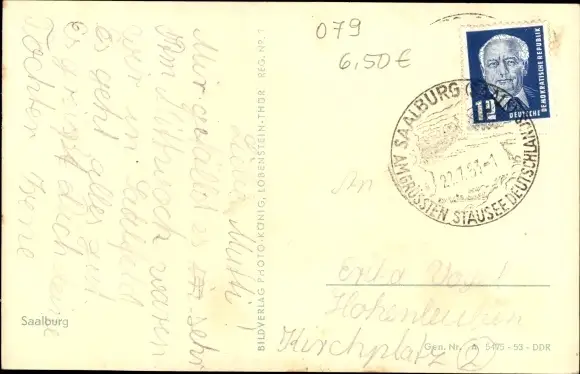 079
6,50€
Liebe Mutti!
Mir gefällt es sehr
Am Mittwoch waren
wir in Saalfeld
es geht alles gut
Es grüßt dich deine
Tochter Irene
Saalburg
BILDVERLAG PHOTO-KÖNIG, LOBENSTEIN-THÜR REG. NR. 1
12
DEUTSCHE
DEMOKRATISCHE REPUBLIK
SAALBURG (SAALE)
AM GRÖSSTEN STAUSEE DEUTSCHLANDS
An
Hohenleuben
Kirchplatz 2
Gen. Nr. 5475 - 53 - DDR